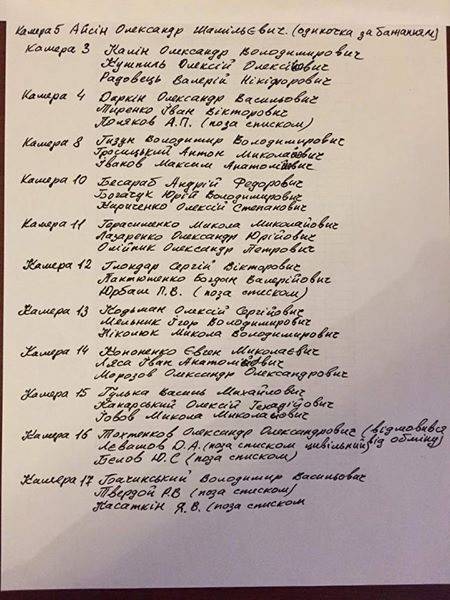 Камера 5 Айсін Олександр Шамільєвич. (одиночка за бажанням)
Камера 3 Калін Олександр Володимирович
Кушпиль Олексій Олексійович
Радовець Валерій Нікіфорович
Камера 4 Даркін Олександр Васильович
Пиренко Іван Вікторович
Поляков А.П. (поза списком)
Камера 8 Гиздн Володимир Володимирович
Гросицький Антон Миколайович
Іванов Максим Анатолійович
Камера 10 Бесараб Андрій Федорович
Богачук Юрій Володимирович
Кириченко Олексій Степанович
Камера 11 Герасименко Микола Миколайович
Лазаренко Олександр Юрійович
Олійник Олександр Петрович
Камера 12 Глондар Сергій Вікторович
Пантюшенко Богдан Валерійович
Юрбаш П.В. (поза списком)
Камера 13 Кодьман Олексій Сергійович
Мельник Ігор Володимирович
Ніколюк Микола Володимирович
Камера 14 Кононенко Євген Миколаєвич
Ляса Іван Анатолійович
Морозов Олександр Олександрович
Камера 15 Гулька Василь Михайлович
Какарський Олексій Генадійович
Говов Микола Миколайович
Камера 16 Тохтенков Олександр Олександрович (відмовився від обміну)
Левашов О.А. (поза списком цивільний)
Белов Ю.С (поза списком)
Камера 17 Бачинський Володимир Васильович
Твердой Р.В (поза списком)
Касаткін Я.В. (поза списком